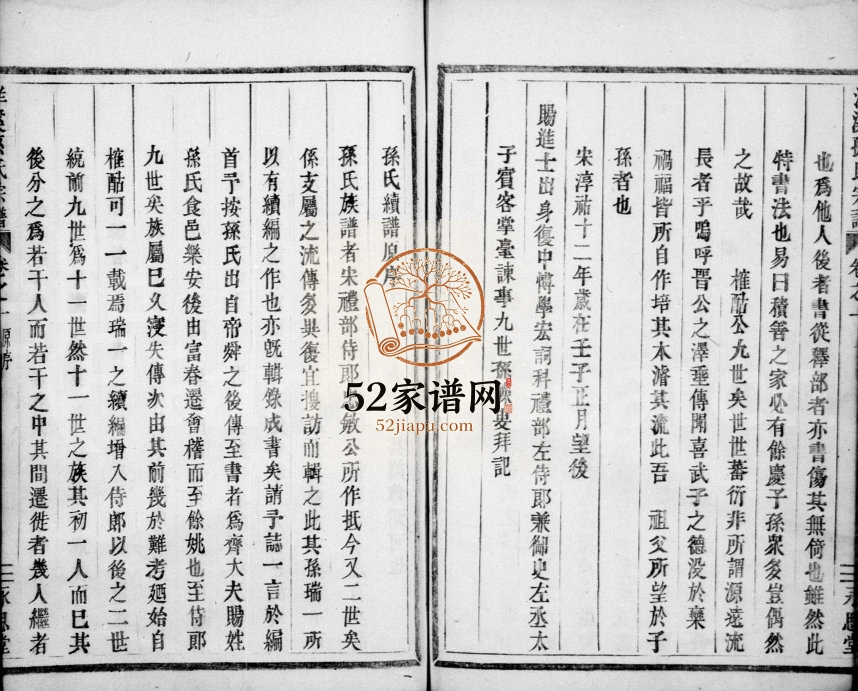 也爲他人後者書從釋部者亦書傷其無倚也雖然此
特書法也易曰積善之家必有餘慶子孫衆多豈偶然
之故哉 榷酤公九世矣世世蕃衍非所謂源遠流
長者乎嗚呼晋公之澤垂傳聞喜武子之德没於欒
禍福皆所自作培其本濬其流此吾 祖父所望於子
孫者也
宋淳祐十二年歲在壬子正月望後
賜進士出身復中博學宏詞科禮部左侍郎兼御史左丞太
子賓客掌臺諫事九世孫 叟拜記
孫氏續譜原序
孫氏族譜者宋禮部侍郎 敏公所作抵今又二世矣
係支屬之流傳多其復宜搜訪而輯之此其孫瑞一所
以有續編之作也亦旣輯錄成書矣請予誌一言於編
首予按孫氏出自帝舜之後傳至書者爲齊大夫賜姓
孫氏食邑樂安後由富春遷會稽而至餘姚也至侍郎
九世矣族屬已久寖失傳次由其前幾於難考廼始自
榷酤可一一載焉瑞一之續編增入侍郎以後之二世
統前九世爲十一世然十一世之族其初一人而已其
後分之爲若干人而若干之中其間遷徙者幾人繼者
氏宗譜
卷之一
原序
一
永思堂
52家谱网
52jiapu.com